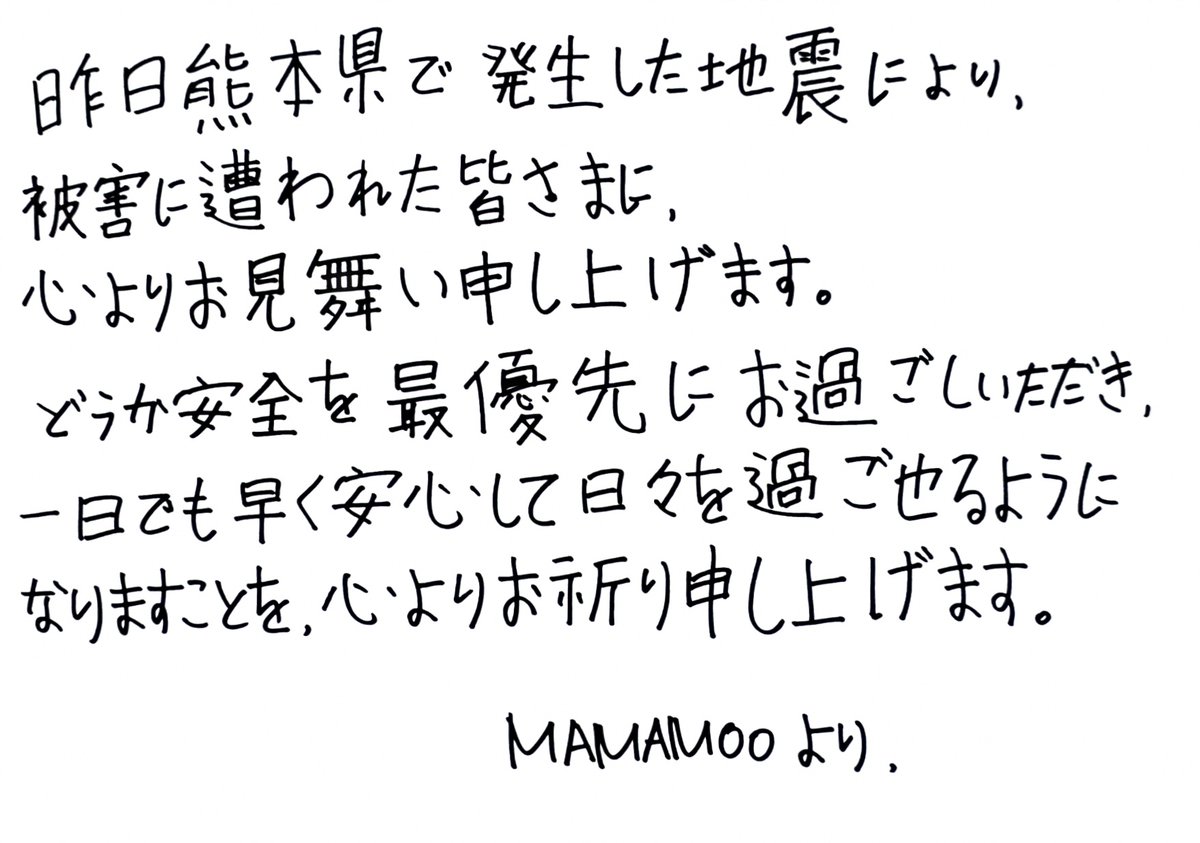 昨日熊本県で発生した地震により,
被害に遭われた皆さまに,
心よりお見舞い申し上げます。
どうか安全を最優先にお過ごしいただき,
一日でも早く安心して日々を過ごせるように
なりますことを,心よりお祈り申し上げます。
MAMAMOOより,